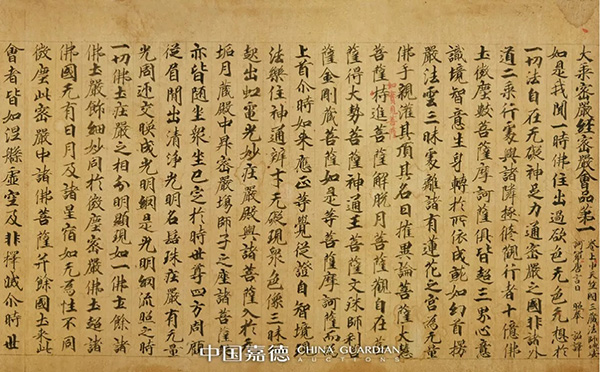 大乘密嚴經密嚴會品第一
如是我聞一時佛住出過欲色无色无想於
一切法自在无礙神足力通密嚴之國非諸外
道二乘行處與諸隣極修觀行者十億佛
土微塵數菩薩摩訶薩俱皆超三界心意
識境智意生身轉於所依成就如幻首楞
嚴法雲三昧處離諸有蓮花之宮為无量
佛手觀灌其頂其名曰摧異論菩薩大慧
菩薩持進菩薩解脫月菩薩觀自在菩
薩得大勢菩薩神通王菩薩文殊師利菩
薩金剛藏菩薩如是等菩薩摩訶薩而為
上首尒時如來應正等覺從證自智境
法樂住神通辯才无礙現衆色像三昧
起出虹電光妙莊嚴殿與諸菩薩入於无
垢月藏殿中昇密嚴場師子之座諸菩薩
亦皆隨坐衆坐已定於時世尊四方周顧
從眉間出清淨光明名髻珠莊嚴有无量
光周遍交暎成光明網是光明網流照之時
一切佛土莊嚴之相分明顯現如一佛土餘諸
佛土嚴飾細妙同於微塵密嚴佛土超諸
佛國无有日月及諸星宿如无為性不同
微塵此密嚴中諸佛菩薩并餘國土來此
會者皆如涅槃虛空及非擇滅尒時世
中国嘉德 CHINA GUARDIAN AUCTIONS